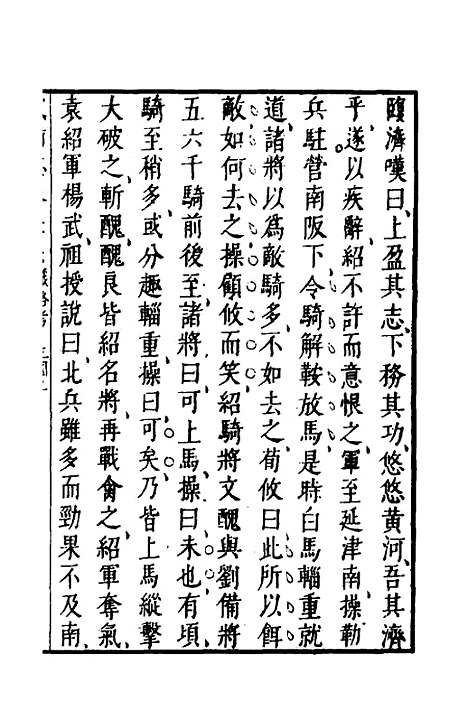 臨濟嘆曰、上盈其志、下務其功、悠悠黄河、吾其濟
乎、遂以疾辭、紹不許而意恨之、軍至延津南、操勒
兵駐營南阪下、令騎解鞍放馬、是時白馬輜重就
道、諸將以爲敵騎多、不如去之、荀攸曰、此所以餌
敵、如何去之、操顧攸而笑、紹騎將文醜與劉備將
五六千騎前後至、諸將曰、可上馬、操曰、未也、有頃、
騎至稍多、或分趣輜重、操曰、可矣、乃皆上馬、縱擊
大破之、斬醜、醜良皆紹名將、再戰禽之、紹軍奪氣、
袁紹軍楊武、祖授說曰、北兵雖多、而勁果不及南、